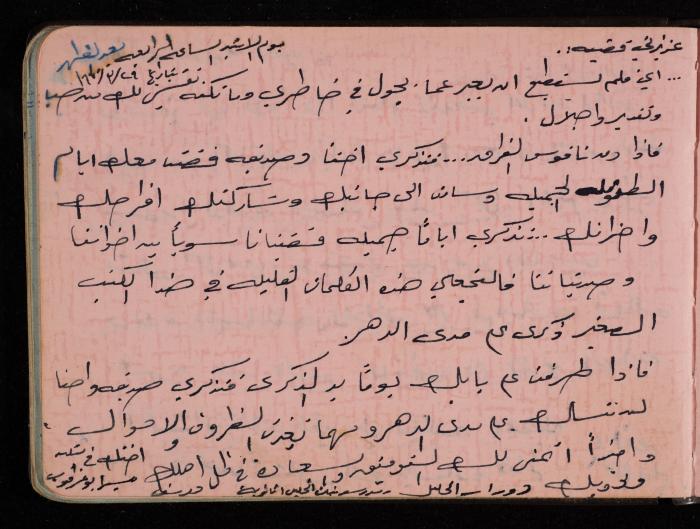 عزيزتي قضيه..
يوم الاربعاء الساعه الرابعه بعد الظهر
بتاريخ
... اي قلم يستطيع ان يعبر عما يجول في خاطري وما تكنه نفسي لك من حب
وتقدير واجلال .
فاذا دق ناقوس الفراق... فتذكري اختا وصديقه قضت معك ايام
الطفوله الجميله وسارت الى جانبك وشاركتك افراحك
واحزانك .. تذكري اياما جميله قضيناها سويا بين اخواتنا
وصديقاتنا فالتجعلي هذه الكلمات القليله في هذا الكتيب
الصغير ذكرى على مدى الدهر.
فاذا طرقت على بابك يوما يد الذكرى فتذكري صديقه واختا
لن تنساك على مدى الدهر ومهما تغيرت الظروف والاحوال
واخيرا اتمنى لك التوفيق والسعاده في ظل اهلك
وذويك ودورا الخليل مدرسه بنات الخليل الثانويه
اختك